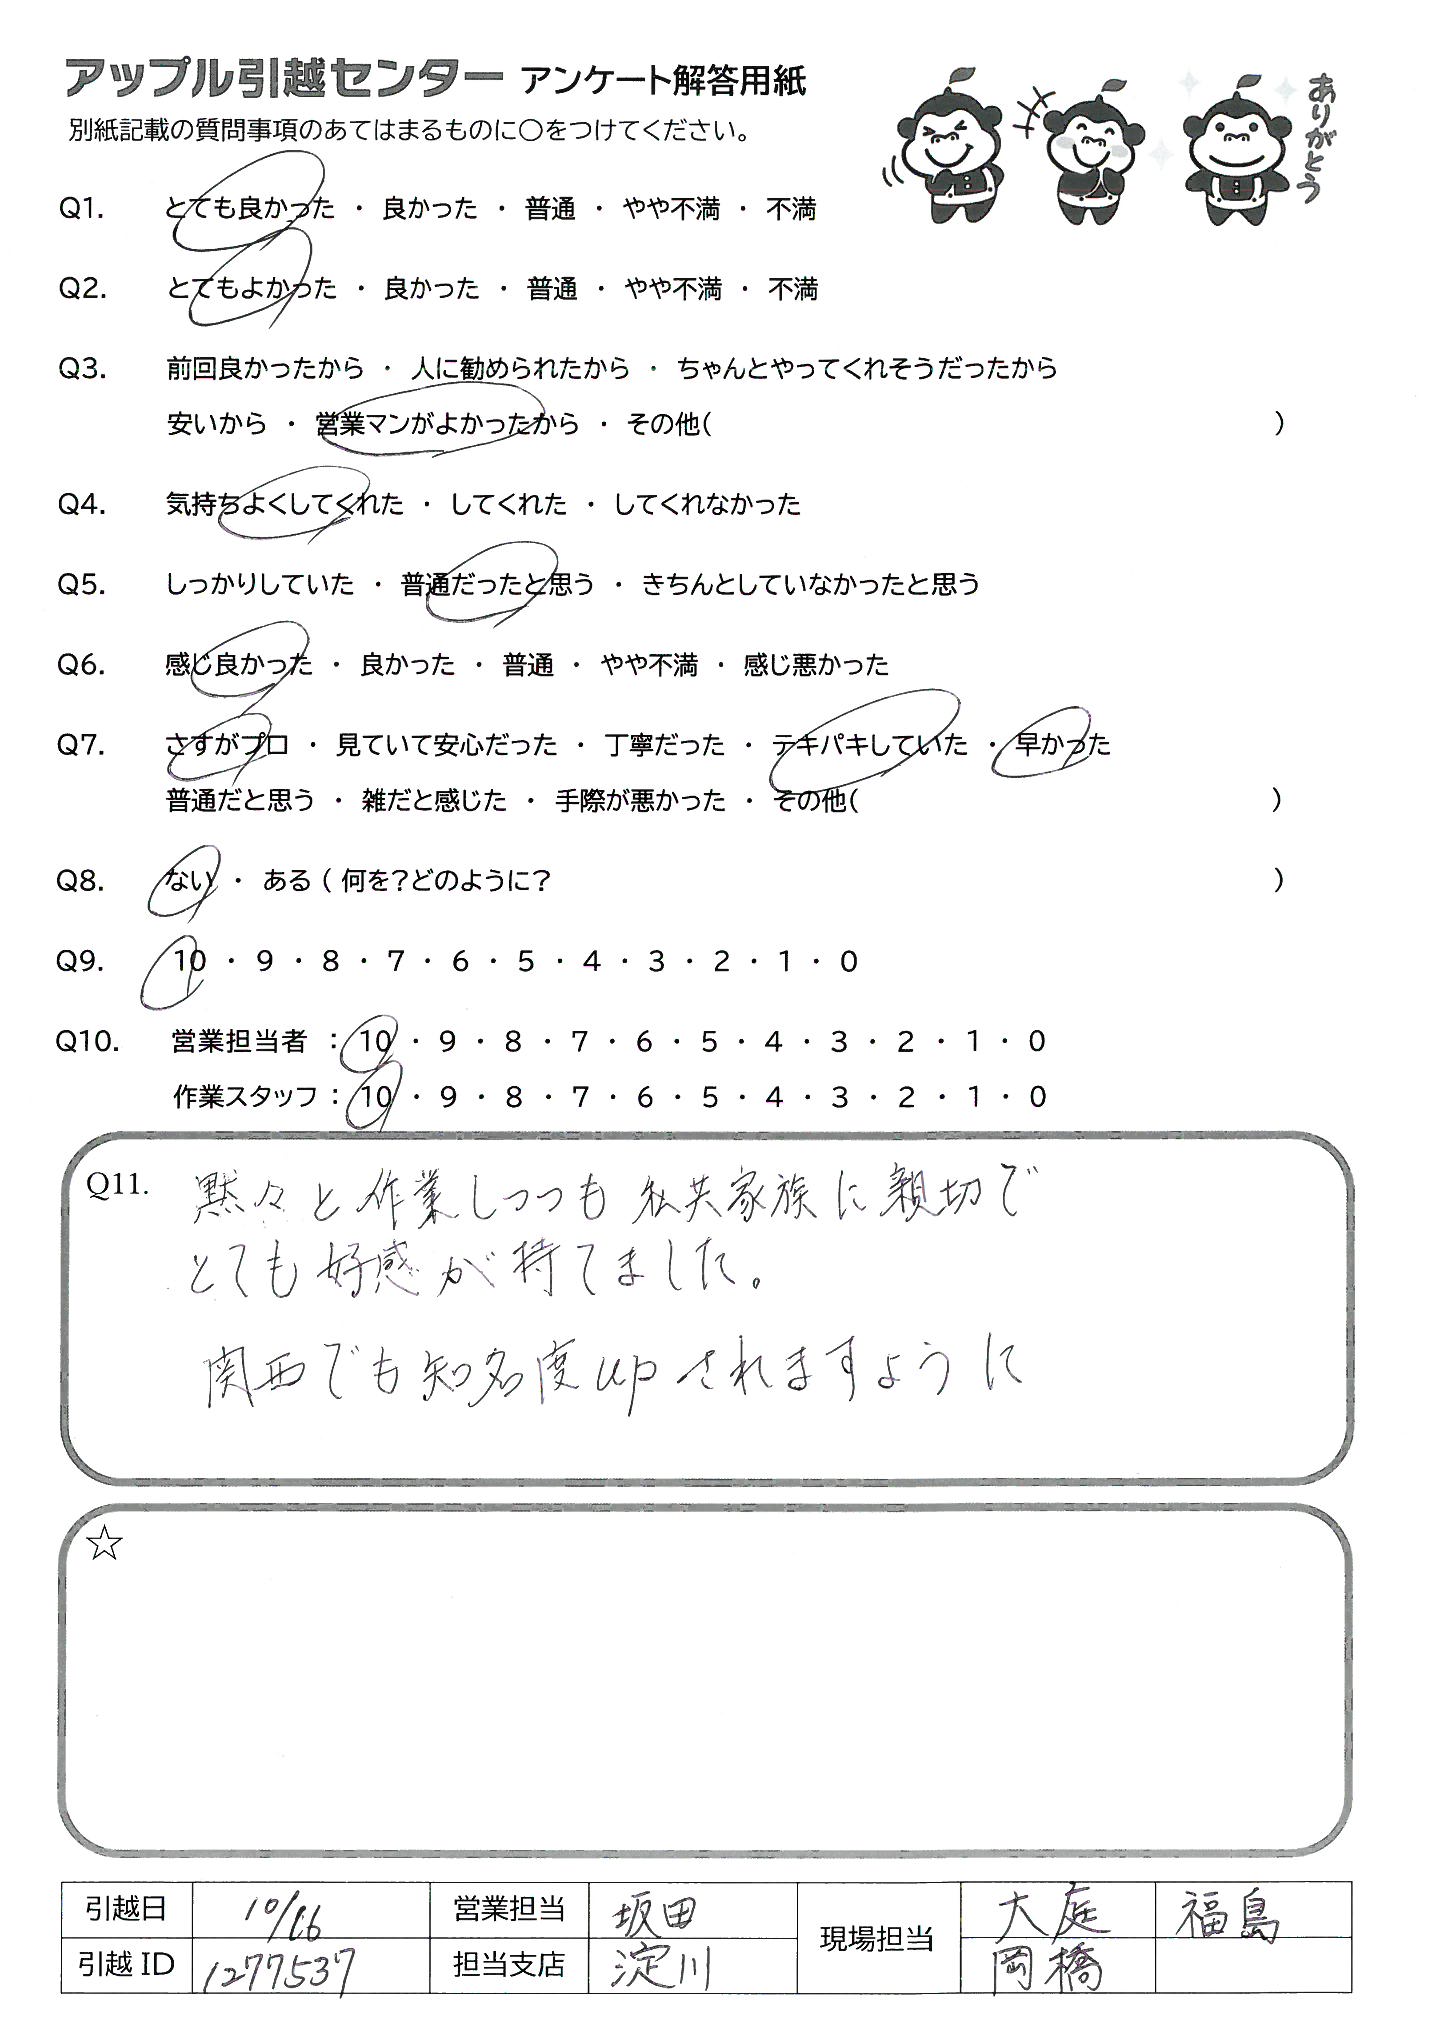 アップル引越センター アンケート解答用紙
ありがとう
別紙記載の質問事項のあてはまるものに○をつけてください。
Q1. とても良かった ・ 良かった ・ 普通 ・ やや不満 ・ 不満
Q2. とてもよかった ・ 良かった ・ 普通 ・ やや不満 ・ 不満
Q3. 前回良かったから ・ 人に勧められたから ・ ちゃんとやってくれそうだったから
安いから ・ 営業マンがよかったから ・ その他( )
Q4. 気持ちよくしてくれた ・ してくれた ・ してくれなかった
Q5. しっかりしていた ・ 普通だったと思う ・ きちんとしていなかったと思う
Q6. 感じ良かった ・ 良かった ・ 普通 ・ やや不満 ・ 感じ悪かった
Q7. さすがプロ ・ 見ていて安心だった ・ 丁寧だった ・ テキパキしていた ・ 早かった
普通だと思う ・ 雑だと感じた ・ 手際が悪かった ・ その他( )
Q8. ない ・ ある ( 何を?どのように? )
Q9. 10 ・ 9 ・ 8 ・ 7 ・ 6 ・ 5 ・ 4 ・ 3 ・ 2 ・ 1 ・ 0
Q10. 営業担当者 : 10 ・ 9 ・ 8 ・ 7 ・ 6 ・ 5 ・ 4 ・ 3 ・ 2 ・ 1 ・ 0
作業スタッフ : 10 ・ 9 ・ 8 ・ 7 ・ 6 ・ 5 ・ 4 ・ 3 ・ 2 ・ 1 ・ 0
Q11. 黙々と作業しつつも私共家族に親切で
とても好感が持てました。
関西でも知名度upされますように
☆
引越日 10/16 営業担当 坂田 現場担当 大庭 福島
引越ID 1277537 担当支店 淀川 岡橋